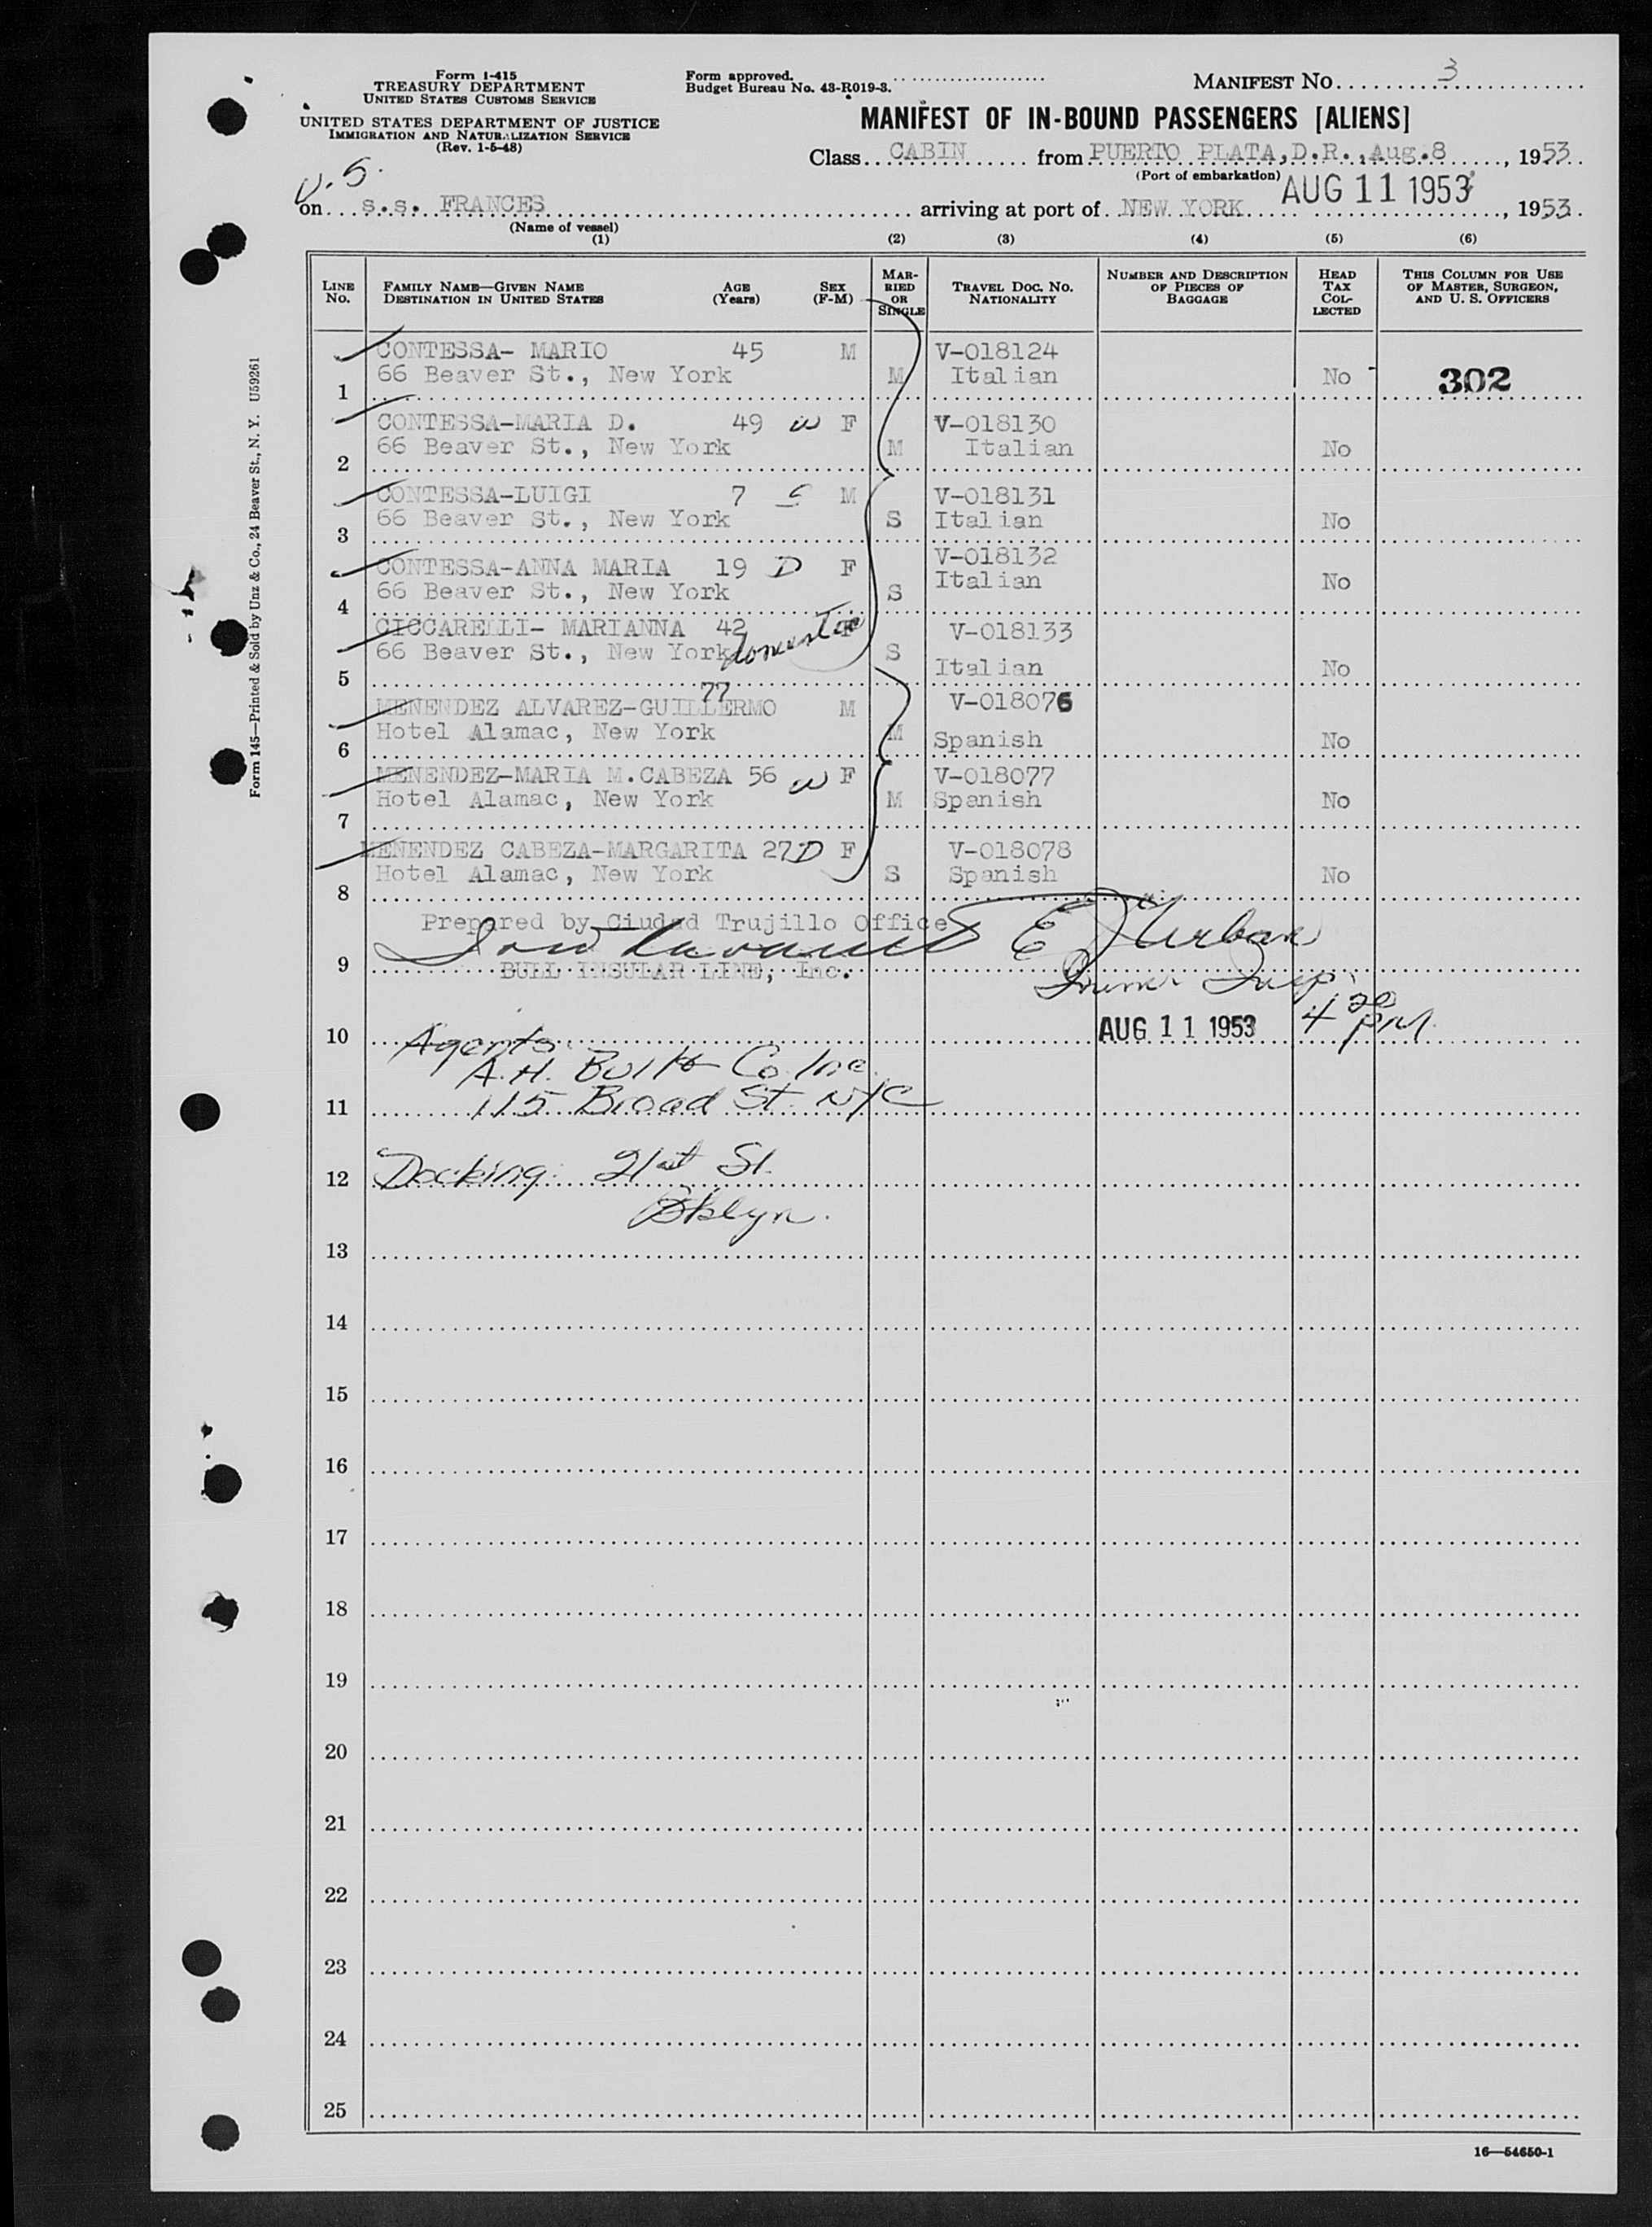 Form I-415
TREASURY DEPARTMENT
UNITED STATES CUSTOMS SERVICE
UNITED STATES DEPARTMENT OF JUSTICE
IMMIGRATION AND NATURALIZATION SERVICE
(Rev. 1-5-48)
Form approved.
Budget Bureau No. 43-R019-3.
MANIFEST No. 3
MANIFEST OF IN-BOUND PASSENGERS [ALIENS]
Class CABIN from PUERTO PLATA, D.R., Aug. 8, 1953
(Port of embarkation)
U.S.
on s.s. FRANCES arriving at port of NEW YORK AUG 11 1953, 1953
(Name of vessel)
(1) (2) (3) (4) (5) (6)
LINE No. FAMILY NAME—GIVEN NAME DESTINATION IN UNITED STATES AGE (Years) SEX (F-M) MARRIED OR SINGLE TRAVEL DOC. No. NATIONALITY NUMBER AND DESCRIPTION OF PIECES OF BAGGAGE HEAD TAX COLLECTED THIS COLUMN FOR USE OF MASTER, SURGEON, AND U. S. OFFICERS
CONTESSA- MARIO 45 M V-018124
1 66 Beaver St., New York M Italian No 302
CONTESSA-MARIA D. 49 W F V-018130
2 66 Beaver St., New York M Italian No
CONTESSA-LUIGI 7 S M V-018131
3 66 Beaver St., New York S Italian No
CONTESSA-ANNA MARIA 19 D F V-018132
4 66 Beaver St., New York S Italian No
CICCARELLI- MARIANNA 42 F V-018133
5 66 Beaver St., New York domestic S Italian No
MENENDEZ ALVAREZ-GUILLERMO 77 M V-018076
6 Hotel Alamac, New York M Spanish No
MENENDEZ-MARIA M.CABEZA 56 W F V-018077
7 Hotel Alamac, New York M Spanish No
MENENDEZ CABEZA-MARGARITA 27 D F V-018078
8 Hotel Alamac, New York S Spanish No
Prepared by Ciudad Trujillo Office
9 BULL INSULAR LINE, Inc.
E Urban
Immr Insp.
10 Agents AUG 11 1953 4 20 PM
A.H. Bull & Co. Inc.
11 115 Broad St. NYC
12 Docking: 21st St.
Bklyn.
13
14
15
16
17
18
19
20
21
22
23
24
25
16—54650-1
Form 145—Printed & Sold by Unz & Co., 24 Beaver St., N. Y. U59261